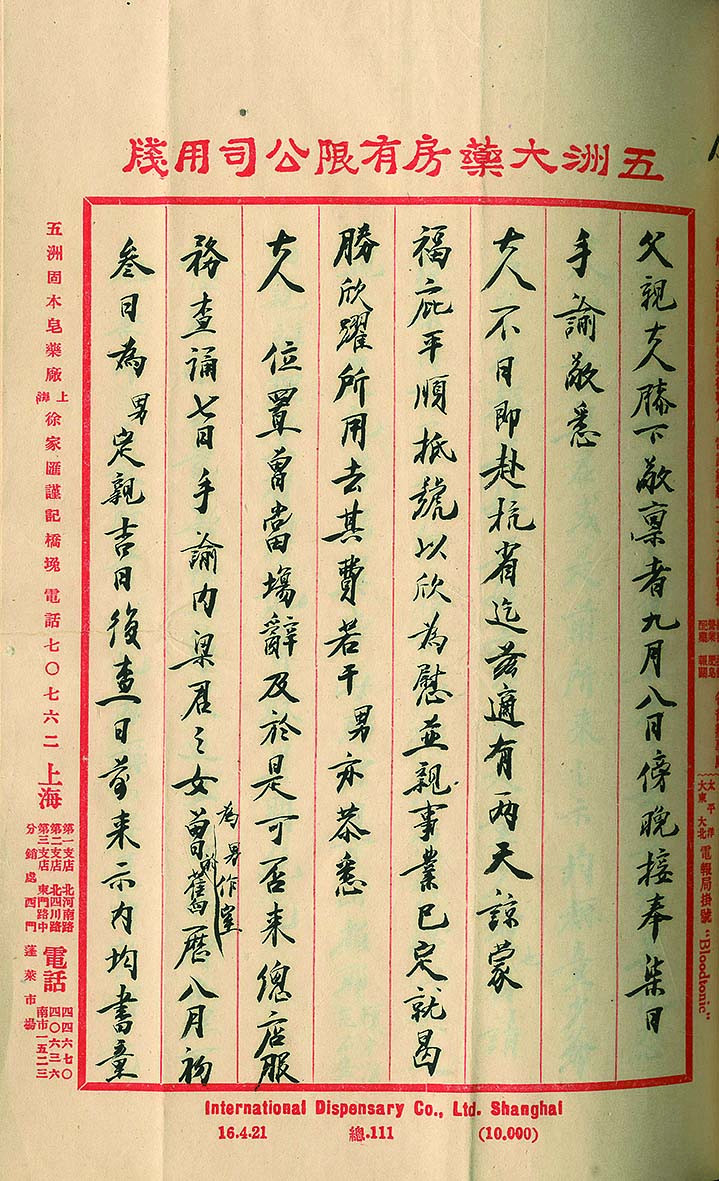 五洲大藥房有限公司用牋
父親大人膝下敬稟者九月八日傍晚接奉柒日
手諭敬悉
大人不日即赴杭省迄茲適有兩天諒蒙
福庇平順抵號以欣為慰並親事業已定就曷
勝欣躍所用去其費若干男亦恭悉
大人 位置曾當場辭及於是可否来總店服
務查誦七日手諭内梁君之女為男作室曾於舊曆八月初
叁日為男定親吉日後查一日前来示内均書童
五洲固本皂藥廠 上海 徐家匯謹記橋堍 電話七〇七六二
上海
第一支店 北河南路
第二支店 北四川路
第三支店 東門路中
分銷處 西門 蓬萊市場
電話
四四六七〇
四〇六三六
南市一五二三
太平洋
大東 大北
電報局掛號 "Bloodtonic"
International Dispensary Co., Ltd. Shanghai
16.4.21 總.111 (10.000)